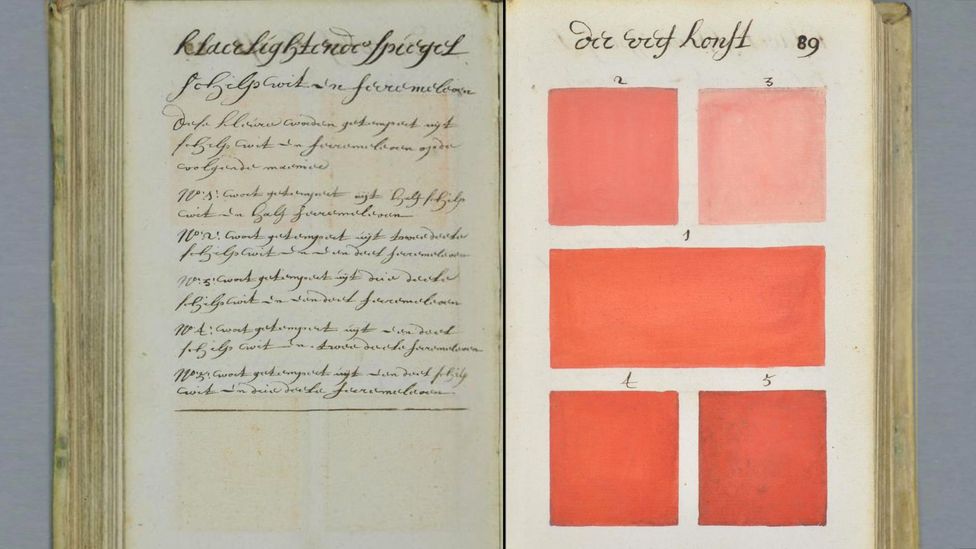 klaerlightende spiegel
schilpwit en ferremeleoen
Dese kleure worden getempert uijt
schilpwit en ferremeleoen op de
volgende manier
No: 1: wort getempert uijt half schilp
wit en half ferremeleoen
No: 2: wort getempert uijt twee deele
schilpwit en een deel ferremeleoen
No: 3: wort getempert uijt drie deele
schilpwit en een deel ferremeleoen
No: 4: wort getempert uijt een deel
schilpwit en twee deele ferremeleoen
No: 5: wort getempert uijt een deel schilp
wit en drie deele ferremeleoen
der verf konst 89
2 3
1
4 5